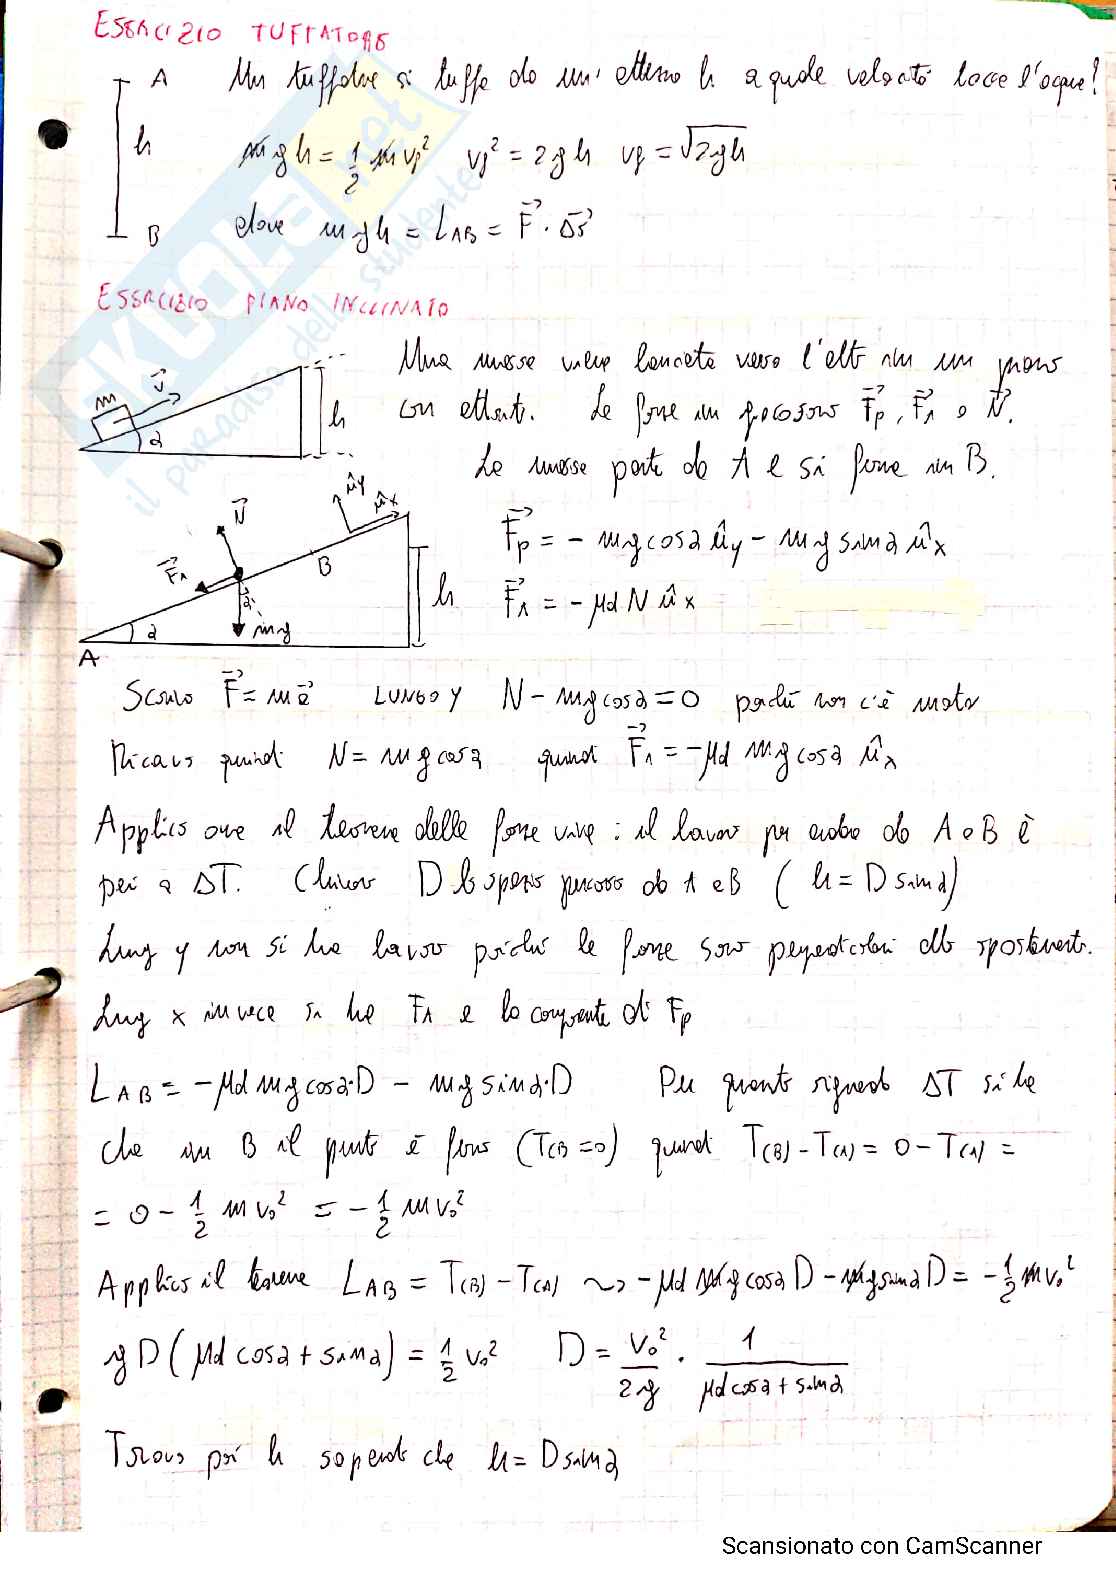 ESERCIZIO TUFFATORE
A Un tuffatore si tuffa da un'altezza h a quale velocità tocca l'acqua?
h mgh = 1/2 m vf² vf² = 2gh vf = √2gh
B dove mgh = L AB = F⃗ · Δr⃗
ESERCIZIO PIANO INCLINATO
Una massa viene lanciata verso l'alto su un piano
m v⃗ α h
con attrito. Le forze in gioco sono F⃗p, F⃗A e N⃗.
La massa parte da A e si ferma in B.
N⃗ ûy ûx
F⃗p = - mg cosα ûy - mg sinα ûx
F⃗A B α h
F⃗A = - μd N ûx
α mg
A
Scrivo F⃗ = ma⃗ LUNGO y N - mg cosα = 0 poiché non c'è moto
Ricavo quindi N = mg cosα quindi F⃗A = - μd mg cosα ûx
Applico ora il teorema delle forze vive: il lavoro per andare da A a B è
pari a ΔT. Chiamo D lo spazio percorso da A a B (h = D sinα)
Lungo y non si ha lavoro poiché le forze sono perpendicolari allo spostamento.
Lungo x invece si ha FA e la componente di Fp
L AB = - μd mg cosα·D - mg sinα·D Per quanto riguarda ΔT si ha
che in B il punto è fermo (T(B)=0) quindi T(B) - T(A) = 0 - T(A) =
= 0 - 1/2 m v₀² = - 1/2 m v₀²
Applico il teorema L AB = T(B) - T(A) ⇝ - μd mg cosα D - mg sinα D = - 1/2 m v₀²
g D (μd cosα + sinα) = 1/2 v₀² D = v₀²/2g · 1/(μd cosα + sinα)
Trovo poi h sapendo che h = D sinα
SKUOLA.net
il paradiso dello studente
Scansionato con CamScanner